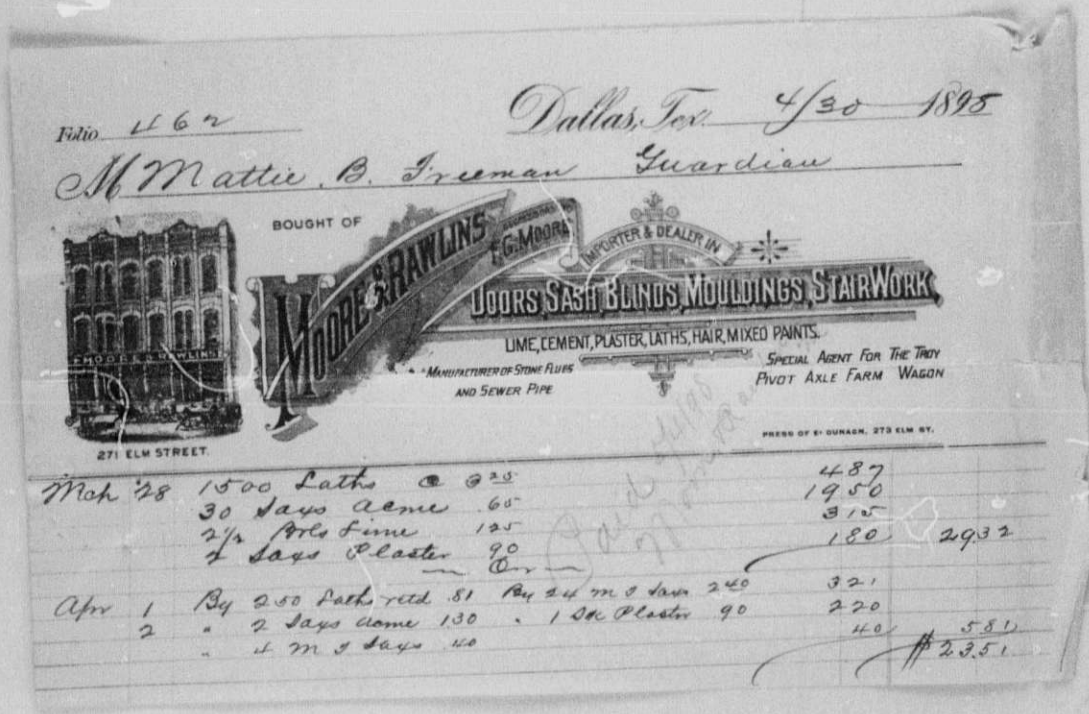 Folio 462 Dallas, Tex. 4/30 1895
M Mattie. B. Freeman Guardian
BOUGHT OF
MOORE & RAWLINS
F. G. MOORE
IMPORTER & DEALER IN
DOORS, SASH, BLINDS, MOULDINGS, STAIR WORK,
LIME, CEMENT, PLASTER, LATHS, HAIR, MIXED PAINTS.
MANUFACTURER OF STONE FLUES
AND SEWER PIPE
SPECIAL AGENT FOR THE TROY
PIVOT AXLE FARM WAGON
MOORE & RAWLINS
271 ELM STREET.
PRESS OF 273 ELM ST.
Mch 28 1500 Laths @ 3 25 487
30 Saxs Acme 65 1950
2 1/2 Brls Lime 125 315
2 Saxs Plaster 90 180 2932
Cr
Apr 1 By 250 Laths retd 81 By 24 m t Saxs 240 321
2 " 2 Saxs Acme 130 " 1 Sx Plaster 90 220
" 4 m t Saxs 40 40 581
$ 2351
Paid